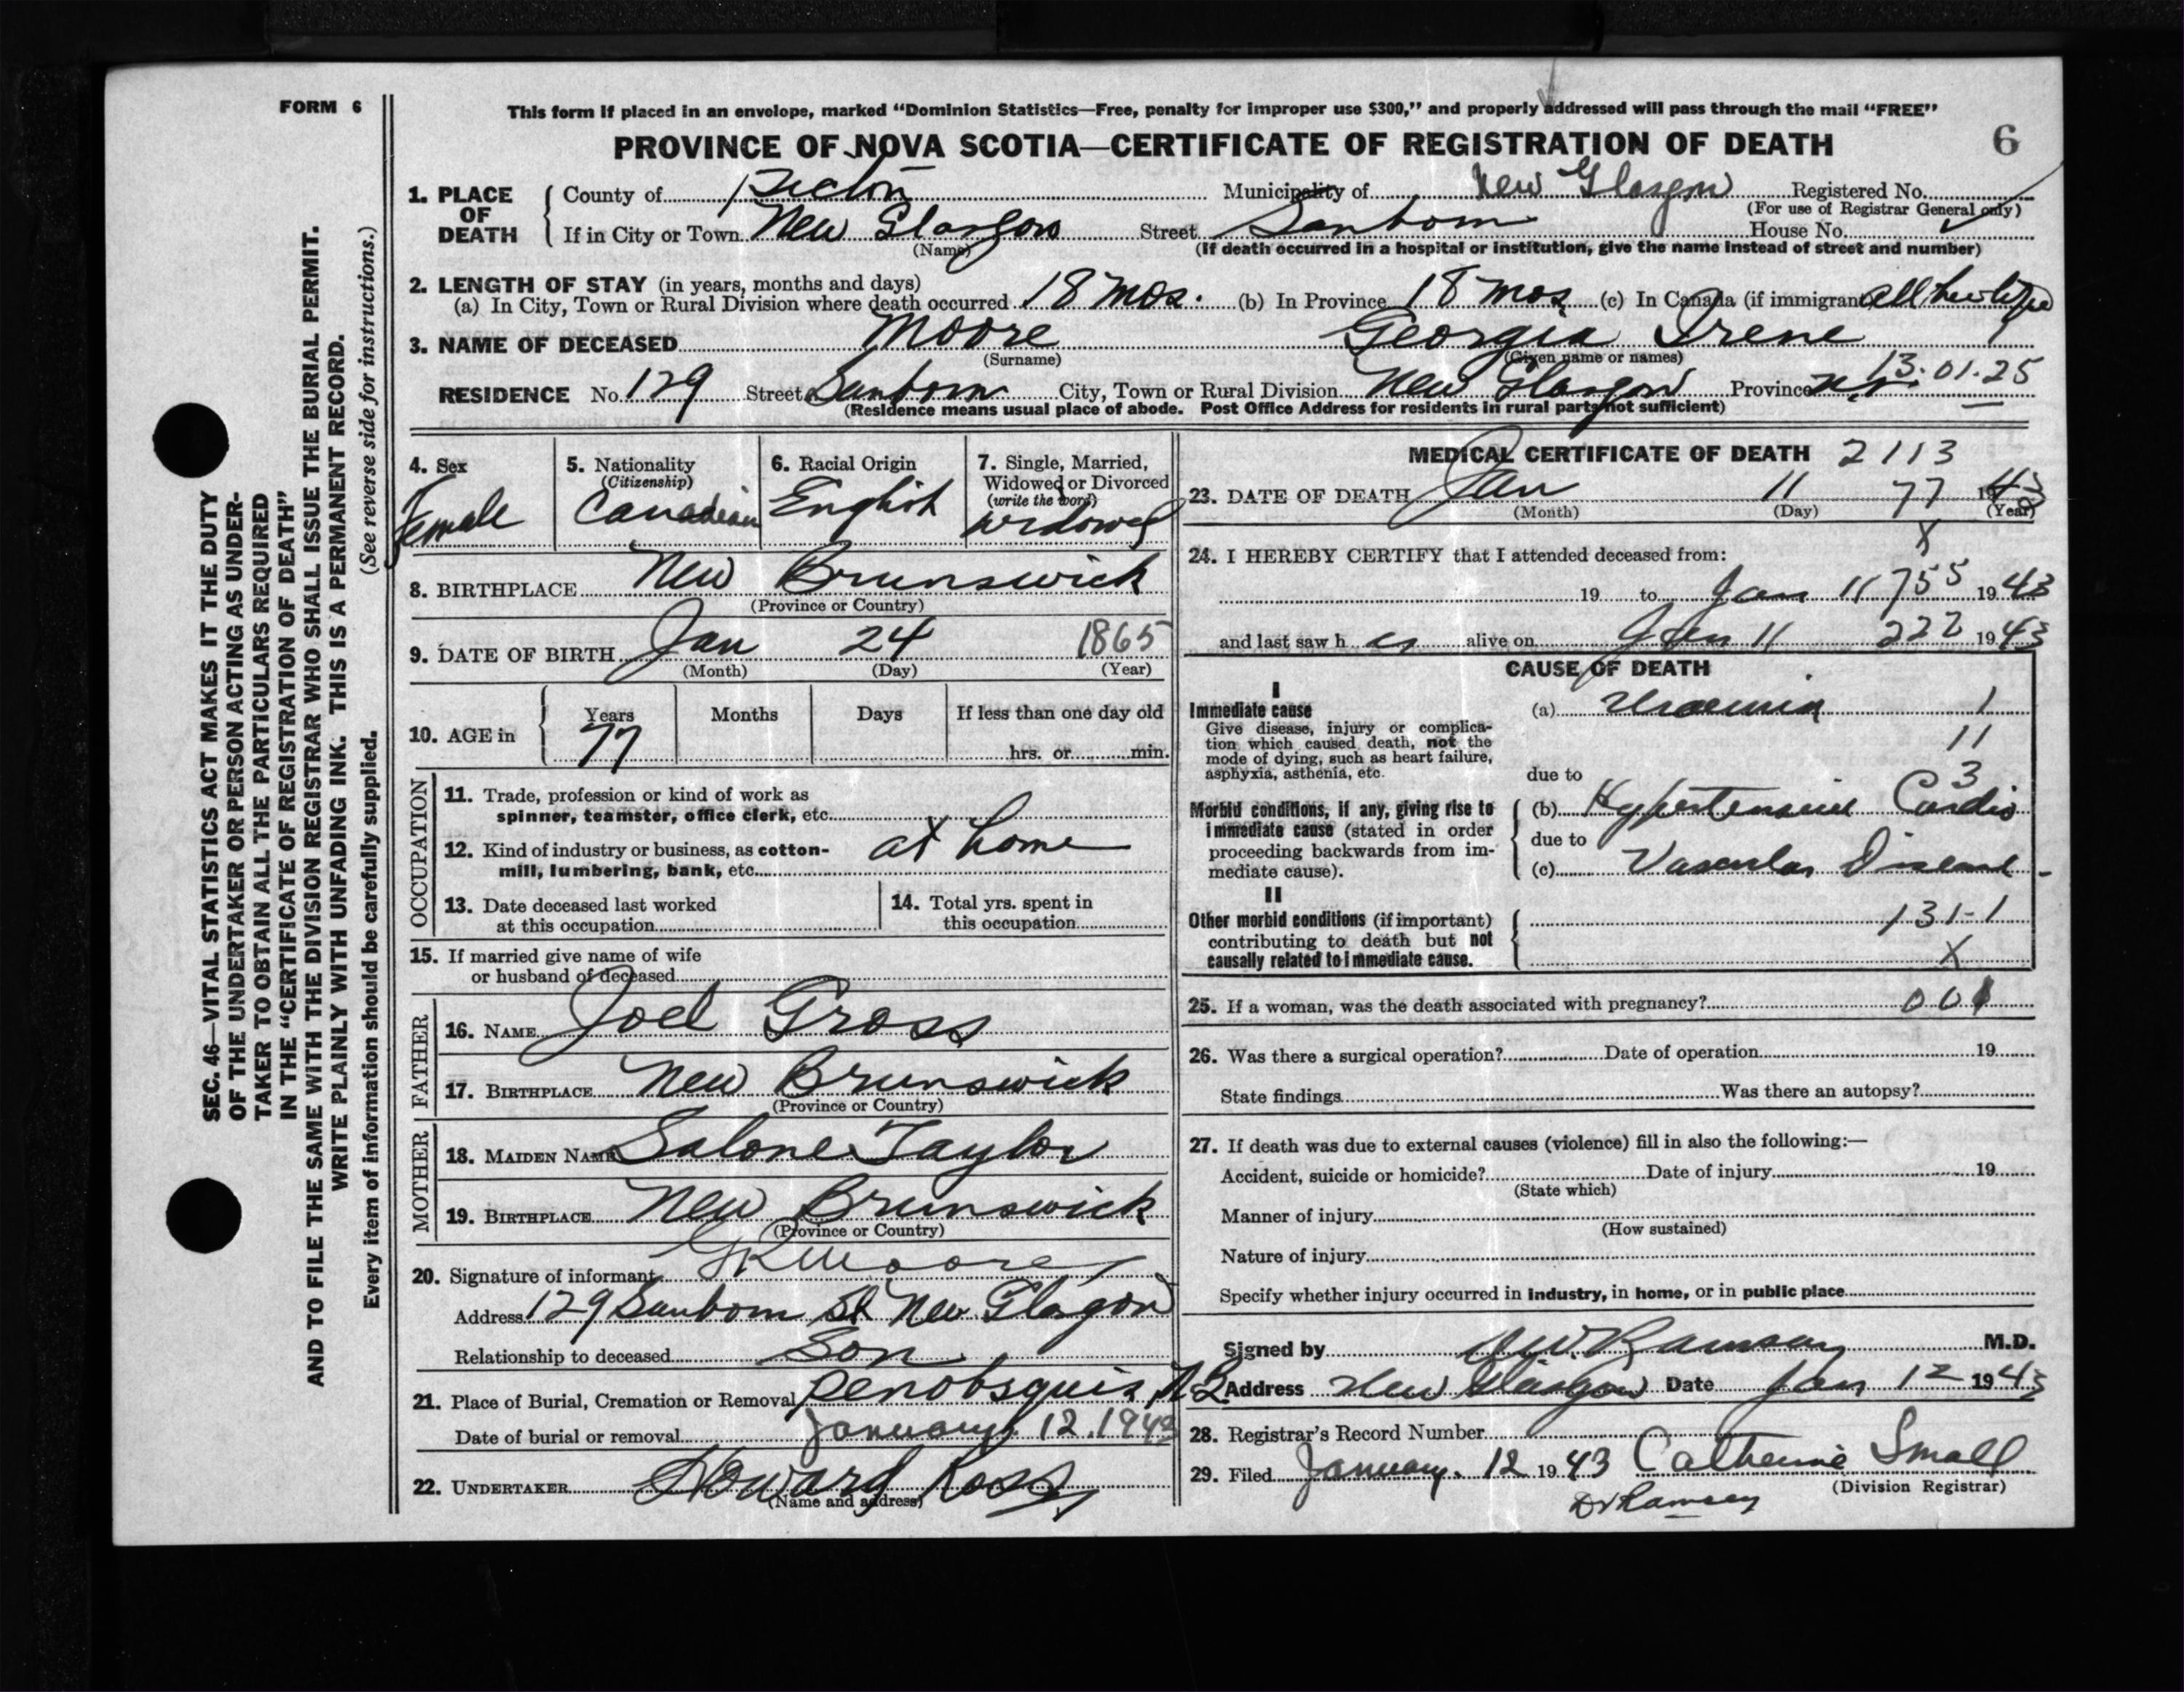 FORM 6
This form if placed in an envelope, marked "Dominion Statistics—Free, penalty for improper use $300," and properly addressed will pass through the mail "FREE"
PROVINCE OF NOVA SCOTIA—CERTIFICATE OF REGISTRATION OF DEATH
6
1. PLACE OF DEATH
County of Pictou Municipality of New Glasgow Registered No.
(For use of Registrar General only)
If in City or Town New Glasgow Street Sanborn House No.
(Name) (If death occurred in a hospital or institution, give the name instead of street and number)
2. LENGTH OF STAY (in years, months and days)
(a) In City, Town or Rural Division where death occurred 18 mos. (b) In Province 18 mos (c) In Canada (if immigrant) all her life
3. NAME OF DECEASED Moore Georgia Irene
(Surname) (Given name or names)
13.01.25
RESIDENCE No. 129 Street Sanborn City, Town or Rural Division New Glasgow Province N.S.
(Residence means usual place of abode. Post Office Address for residents in rural parts not sufficient)
4. Sex
Female
5. Nationality
(Citizenship)
Canadian
6. Racial Origin
English
7. Single, Married,
Widowed or Divorced
(write the word)
widowed
8. BIRTHPLACE New Brunswick
(Province or Country)
9. DATE OF BIRTH Jan 24 1865
(Month) (Day) (Year)
10. AGE in
Years Months Days If less than one day old
77 hrs. or min.
OCCUPATION
11. Trade, profession or kind of work as
spinner, teamster, office clerk, etc.
12. Kind of industry or business, as cotton-
mill, lumbering, bank, etc.
at home
13. Date deceased last worked
at this occupation
14. Total yrs. spent in
this occupation
15. If married give name of wife
or husband of deceased
FATHER
16. NAME Joel Gross
17. BIRTHPLACE New Brunswick
(Province or Country)
MOTHER
18. MAIDEN NAME Salone Taylor
19. BIRTHPLACE New Brunswick
(Province or Country)
20. Signature of informant GRMoore
Address 129 Sanborn St New Glasgow
Relationship to deceased Son
21. Place of Burial, Cremation or Removal Penobsquis N.B
Date of burial or removal January. 12. 1943
22. UNDERTAKER Howard Ross
(Name and address)
MEDICAL CERTIFICATE OF DEATH 2113
23. DATE OF DEATH Jan 11 77 1943
(Month) (Day) (Year)
X
24. I HEREBY CERTIFY that I attended deceased from:
19 to Jan 11 755 1943
and last saw her alive on Jan 11 222 1943
CAUSE OF DEATH
I
Immediate cause
Give disease, injury or complica-
tion which caused death, not the
mode of dying, such as heart failure,
asphyxia, asthenia, etc.
(a) Uraemia 1
11
due to 3
Morbid conditions, if any, giving rise to
immediate cause (stated in order
proceeding backwards from im-
mediate cause).
(b) Hypertensive Cardio
due to
(c) Vascular Disease
II
Other morbid conditions (if important)
contributing to death but not
causally related to immediate cause.
131-1
X
25. If a woman, was the death associated with pregnancy? 001
26. Was there a surgical operation? Date of operation 19
State findings Was there an autopsy?
27. If death was due to external causes (violence) fill in also the following:—
Accident, suicide or homicide? Date of injury 19
(State which)
Manner of injury
(How sustained)
Nature of injury
Specify whether injury occurred in industry, in home, or in public place
Signed by Ramsay M.D.
Address New Glasgow Date Jan 12 1943
28. Registrar's Record Number
29. Filed January. 12 1943 Catherine Small
(Division Registrar)
Dr Ramsey
SEC. 46—VITAL STATISTICS ACT MAKES IT THE DUTY
OF THE UNDERTAKER OR PERSON ACTING AS UNDER-
TAKER TO OBTAIN ALL THE PARTICULARS REQUIRED
IN THE "CERTIFICATE OF REGISTRATION OF DEATH"
AND TO FILE THE SAME WITH THE DIVISION REGISTRAR WHO SHALL ISSUE THE BURIAL PERMIT.
WRITE PLAINLY WITH UNFADING INK. THIS IS A PERMANENT RECORD.
Every item of information should be carefully supplied. (See reverse side for instructions.)